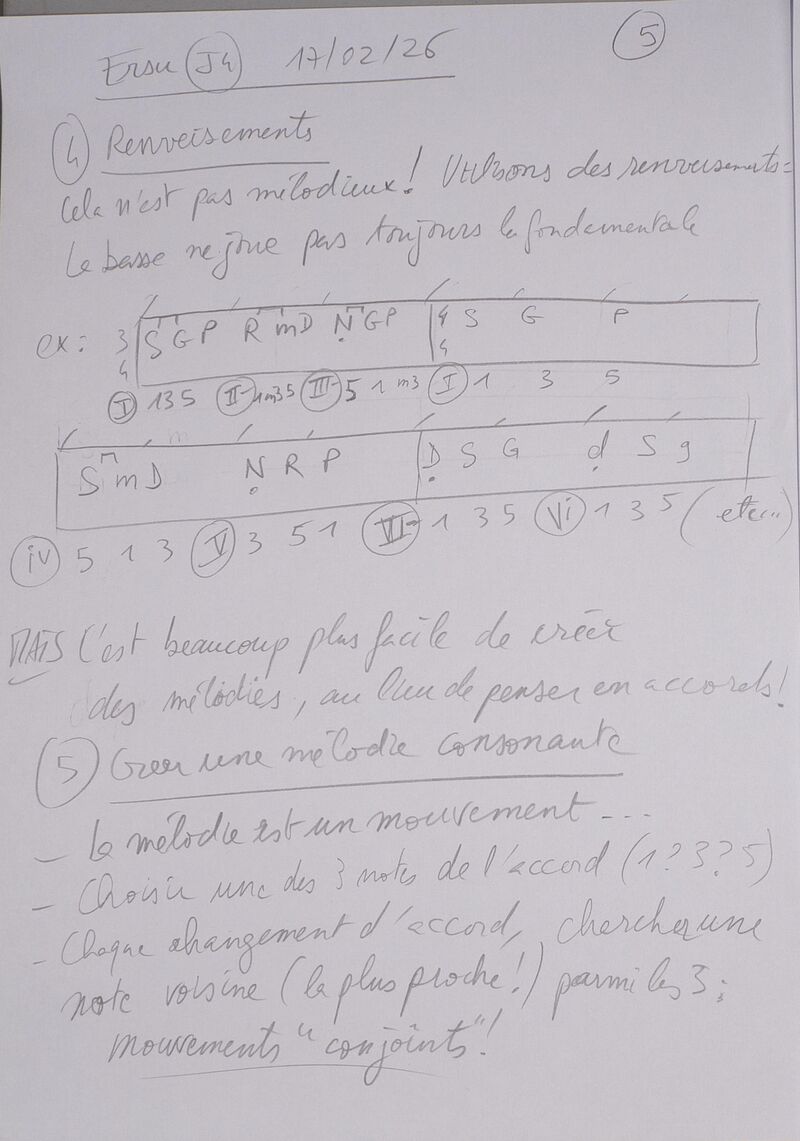 Ersu J4 17/02/26 5
4 Renversements
Cela n'est pas mélodieux! Utilisons des renversements =
la basse ne joue pas toujours la fondamentale
ex: 3 S G P R m D N G P 4 S G P
4 4
I 1 3 5 II- 1 m3 5 III- 5 1 m3 I 1 3 5
S m D N R P D S G d S g
iv 5 1 3 V 3 5 1 VII- 1 3 5 Vi 1 3 5 (etc...)
MAIS C'est beaucoup plus facile de créer
des mélodies, au lieu de penser en accords!
5 Créer une mélodie consonante
- la mélodie est un mouvement ...
- Choisir une des 3 notes de l'accord (1? 3? 5)
- Chaque changement d'accord, chercher une
note voisine (la plus proche!) parmi les 3:
mouvements "conjoints"!